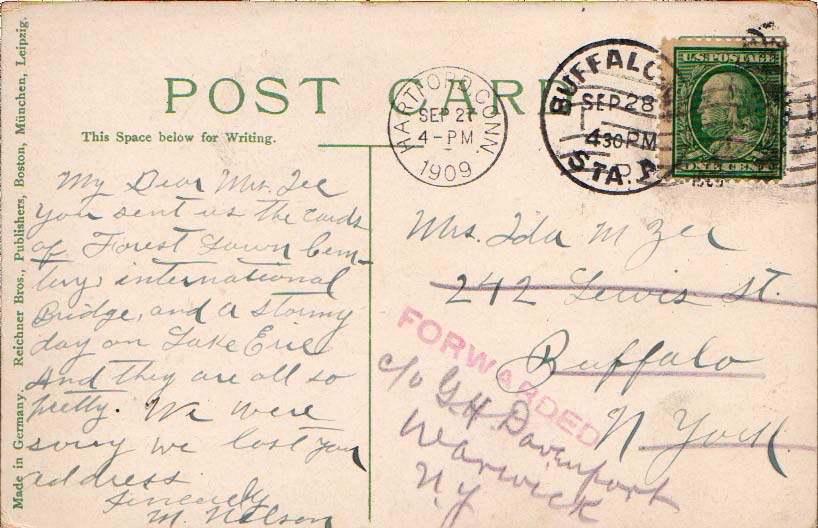 POST CARD
This Space below for Writing.
Made in Germany. Reichner Bros., Publishers, Boston, München, Leipzig.
HARTFORD, CONN.
SEP 27
4-PM
1909
BUFFALO,
SEP 28
430PM
STA. A
U.S. POSTAGE
ONE CENT
My Dear Mrs. Zee
You sent us the cards
of Forest Lawn Cem-
tery, international
Bridge, and a stormy
day on Lake Erie
And they are all so
pretty. We were
sorry we lost your
address
Sincerely
M. Nelson
Mrs. Ida M Zee
242 Lewis St.
Buffalo
N York
FORWARDED
c/o G H Davenport
Warwick
N.Y